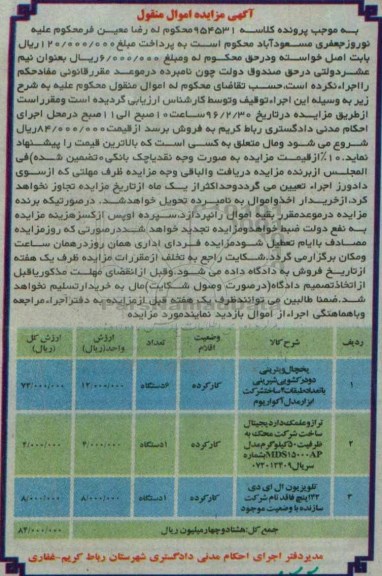 آگهی مزایده اموال منقول
به موجب پرونده کلاسه ۹۵۴۵۳۱محکوم له رضا معین فرمحکوم علیه
نوروزجعفری مسعودآباد محکوم است به پرداخت مبلغ۱۲۰/۰۰۰/۰۰۰ریال
بابت اصل خواسته ودرحق محکوم له ومبلغ ۶/۰۰۰/۰۰۰ریال بعنوان نیم
عشردولتی درحق صندوق دولت چون نامبرده درموعد مقررقانونی مفادحکم
رااجراءنکرده است،حسب تقاضای محکوم له اموال منقول محکوم علیه به شرح
زیر به وسیله این اجراءتوقیف وتوسط کارشناس ارزیابی گردیده است ومقرراست
ازطریق مزایده درتاریخ ۹۶/۲/۳۰ساعت۱۰صبح الی۱۱صبح درمحل اجرای
احکام مدنی دادگستری رباط کریم به فروش برسد ازقیمت۸۴/۰۰۰/۰۰۰ریال
شروع می شود ومال متعلق به کسی است که بالاترین قیمت را پیشنهاد
نماید.۱۰٪ازقیمت مزایده به صورت وجه نقدیاچک بانکی«تضمین شده»فی
المجلس ازبرنده مزایده دریافت والباقی وجه مزایده ظرف مهلتی که ازسوی
دادورز اجراء تعیین می گرددوحداکثراز یک ماه ازتاریخ مزایده تجاوز نخواهد
کرد.ازخریدار اخذواموال به نامبرده تحویل خواهدشد. درصورتیکه برنده
مزایده درموعدمقرربقیه اموال رانپردازد،سپرده اوپس ازکسرهزینه مزایده
به نفع دولت ضبط خواهدومزایده تجدید خواهد شد.درصورتی که روزمزایده
مصادف باایام تعطیل شودمزایده فردای اداری همان روزدرهمان ساعت
ومکان برگزارمی گردد.شکایت راجع به تخلف ازمقررات مزایده ظرف یک هفته
ازتاریخ فروش به دادگاه داده می شود.وقبل ازانقضای مهلت مذکوریاقبل
ازاتخاذتصمیم دادگاه(درصورت وصول شکایت)مال به خریدارتسلیم نخواهد
شد.ضمنا طالبین می توانندظرف یک هفته قبل ازمزایده به دفتراجراءمراجعه
وباهماهنگی اجراءاز اموال بازدید نمایندمورد مزایده
ردیف شرح کالا وضعیت اقلام تعداد ارزش واحد(ریال) ارزش کل (ریال)
۱ یخچال ویترینی دودرکشویی شیرینی باتعدادطبقات۴ساخت شرکت ابزارمدل آکواریوم کارکرده ۶دستگاه ۱۲/۰۰۰/۰۰۰ ۷۲/۰۰۰/۰۰۰
۲ ترازومحک دار دیجیتال ساخت شرکت محک به ظرفیت ۵۰کیلوگرم مدل MDS15000APبشماره سریال۰۷۳۰۱۳۲۰۹ کارکرده ۱دستگاه ۴/۰۰۰/۰۰۰ ۴/۰۰۰/۰۰۰
۳ تلویزیون ال ای دی ۳۲اینچ فاقد نام شرکت سازنده با وضعیت موجود کارکرده ۱دستگاه ۸/۰۰۰/۰۰۰ ۸/۰۰۰/۰۰۰
جمع کل:هشتادوچهارمیلیون ریال ۸۴/۰۰۰/۰۰۰
مدیردفتر اجرای احکام مدنی دادگستری شهرستان رباط کریم-غفاری